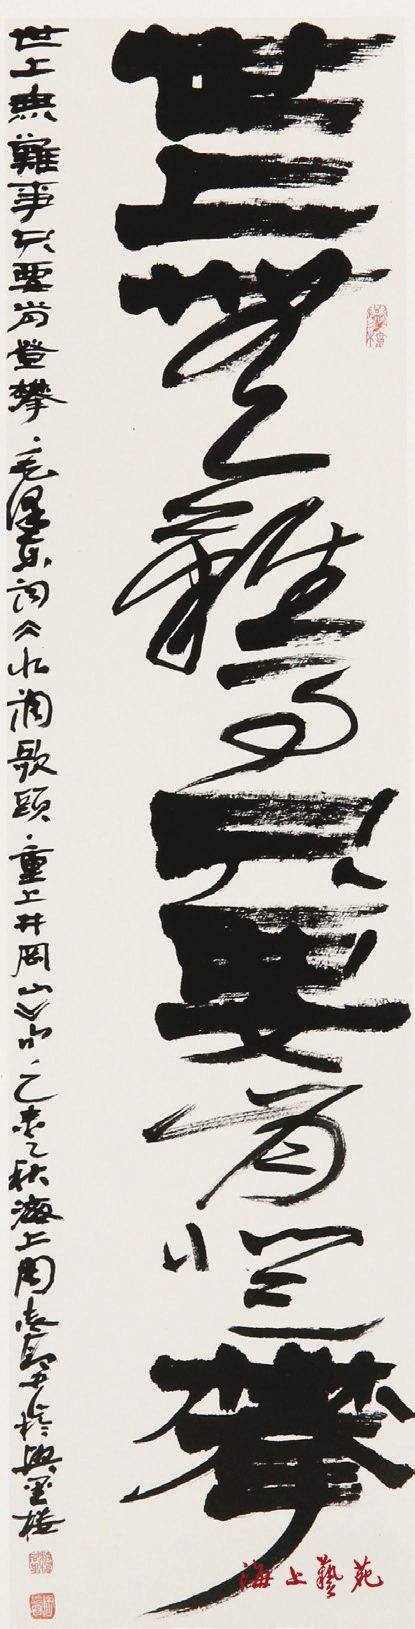 世上無難事只要肯登攀
世上無難事只要肯登攀·毛澤東詞《水調歌頭·重上井岡山》句·乙秋海上周志高於墨樓
海上藝苑